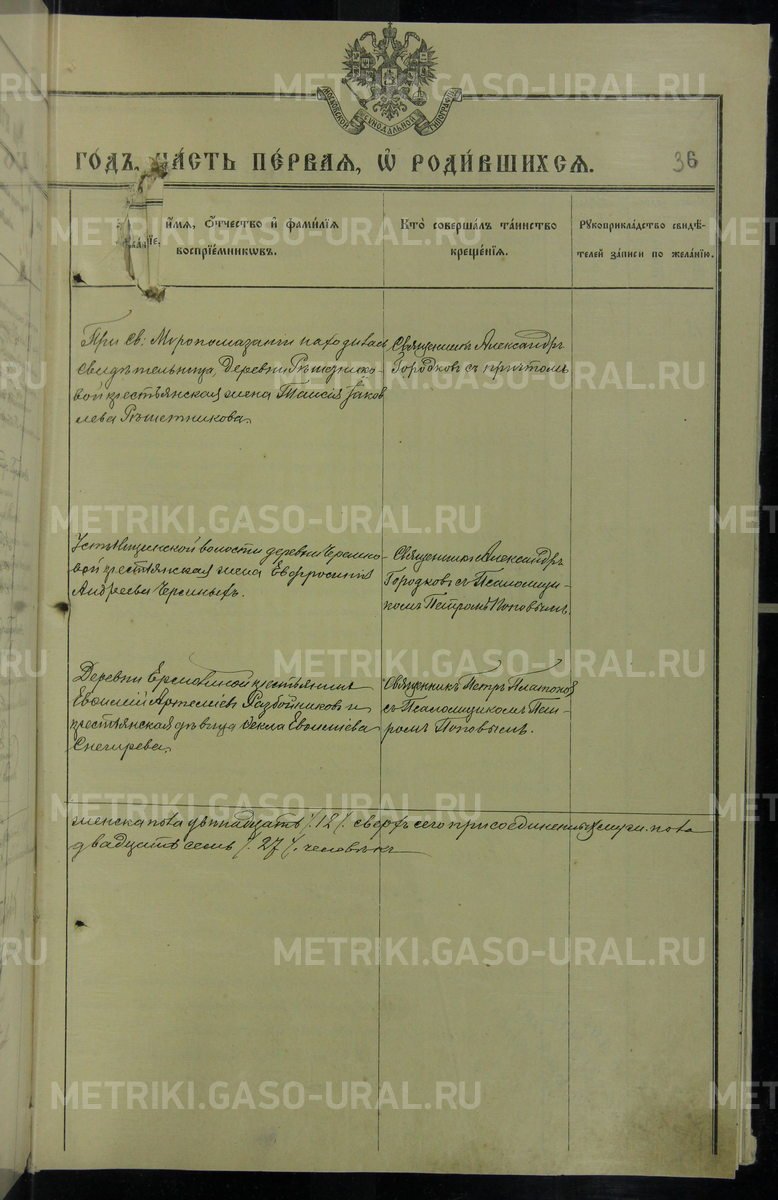 МОСКОВСКОЙ СѴНОДАЛЬНОЙ ТИПОГРАФІИ
ГОДЪ, ЧАСТЬ ПЕРВАЯ, Ѡ РОДИВШИХСЯ.
36
ИМЯ, ОТЧЕСТВО И ФАМИЛІЯ
ВОСПРІЕМНИКѠВЪ.
КТО СОВЕРШАЛЪ ТАИНСТВО
КРЕЩЕНІЯ.
РУКОПРИКЛАДСТВО СВИДѢ-
ТЕЛЕЙ ЗАПИСИ ПО ЖЕЛАНІЮ.
При Св: Миропомазаніи находилась
свидѣтельница, деревни
вой крестьянская жена Таисія Іаков
лева Рѣшетникова.
Священникъ Александръ
Городковъ съ причтомъ
волости деревни
вой крестьянская жена Евфросинія
Андреева
Священникъ Александръ
Городковъ съ Псаломщи-
комъ Петромъ Поповымъ.
Деревни крестьянинъ
Евѳимій Артеміевъ Разбойниковъ и
крестьянская дѣвица Ѳекла Евѳиміева
Снегирева.
Священникъ Петръ Платоновъ
съ Псаломщикомъ Пет-
ромъ Поповымъ.
женска пола двѣнадцать /.12/. сверхъ сего присоединенныхъ муж. пола
двадцать семь /.27/. человѣкъ
METRIKI.GASO-URAL.RU